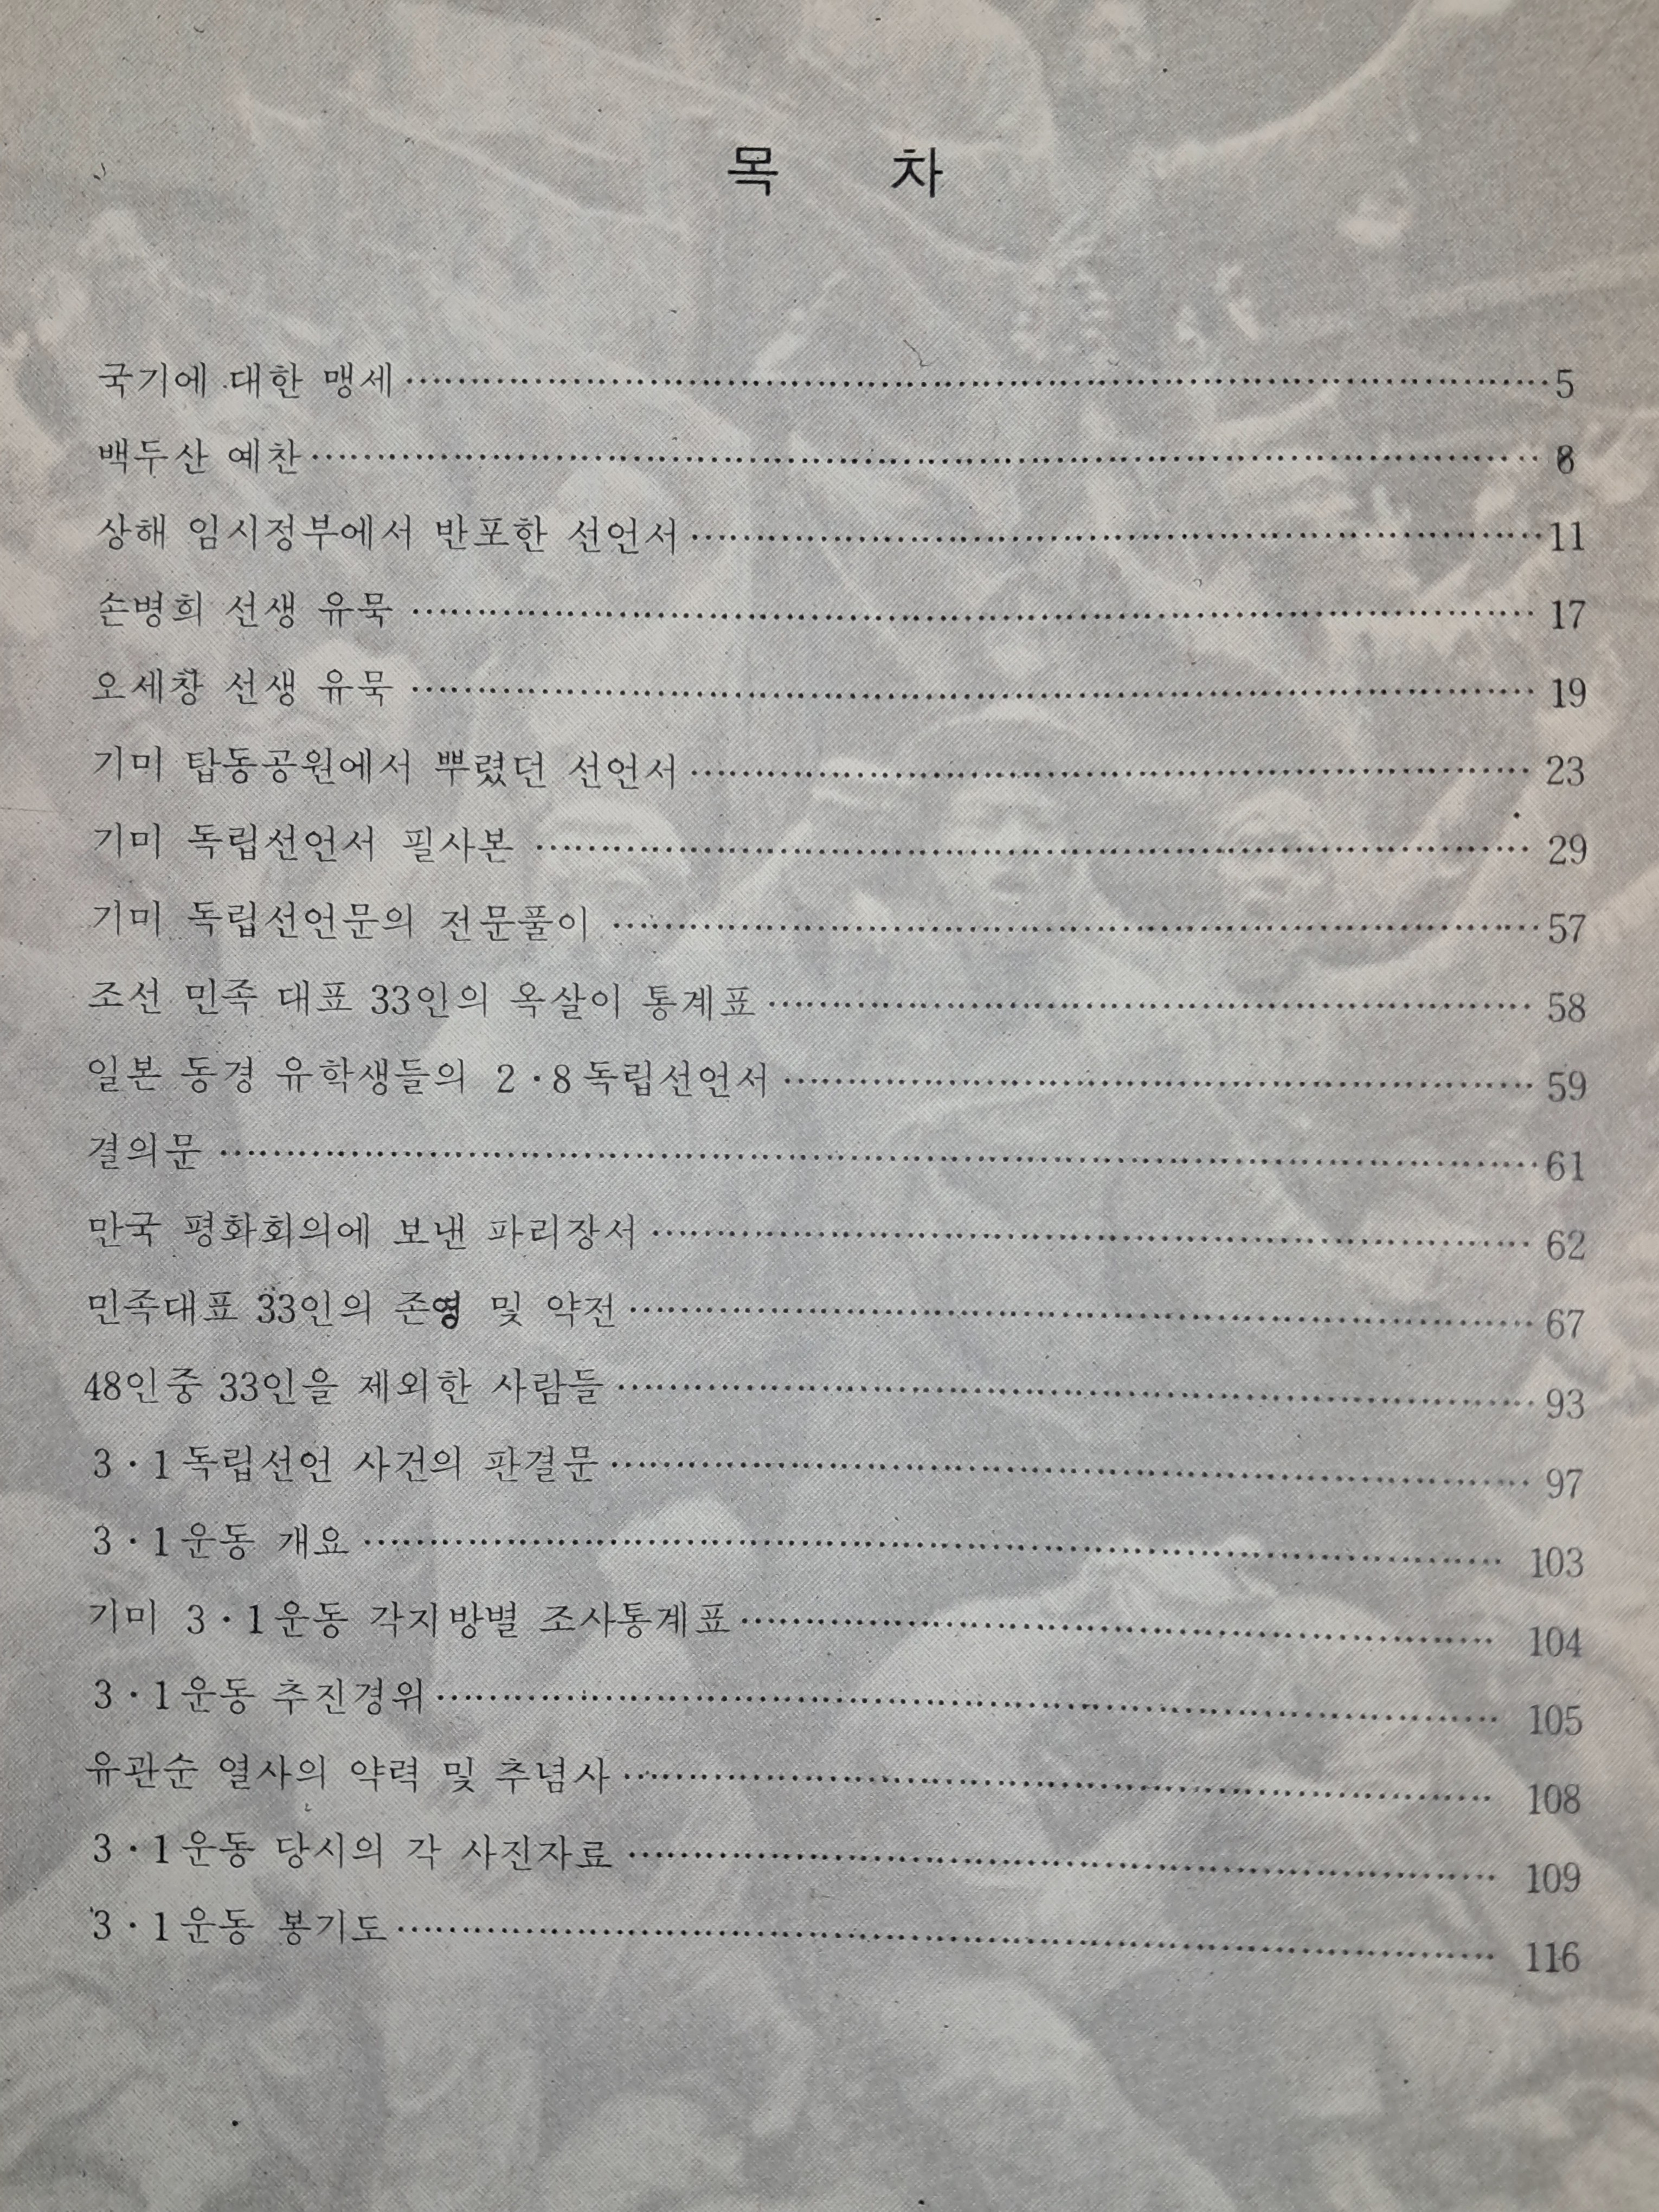 목 차
국기에 대한 맹세 5
백두산 예찬 8
상해 임시정부에서 반포한 선언서 11
손병희 선생 유묵 17
오세창 선생 유묵 19
기미 탑동공원에서 뿌렸던 선언서 23
기미 독립선언서 필사본 29
기미 독립선언문의 전문풀이 57
조선 민족 대표 33인의 옥살이 통계표 58
일본 동경 유학생들의 2·8독립선언서 59
결의문 61
만국 평화회의에 보낸 파리장서 62
민족대표 33인의 존영 및 약전 67
48인중 33인을 제외한 사람들 93
3·1독립선언 사건의 판결문 97
3·1운동 개요 103
기미 3·1운동 각지방별 조사통계표 104
3·1운동 추진경위 105
유관순 열사의 약력 및 추념사 108
3·1운동 당시의 각 사진자료 109
3·1운동 봉기도 116